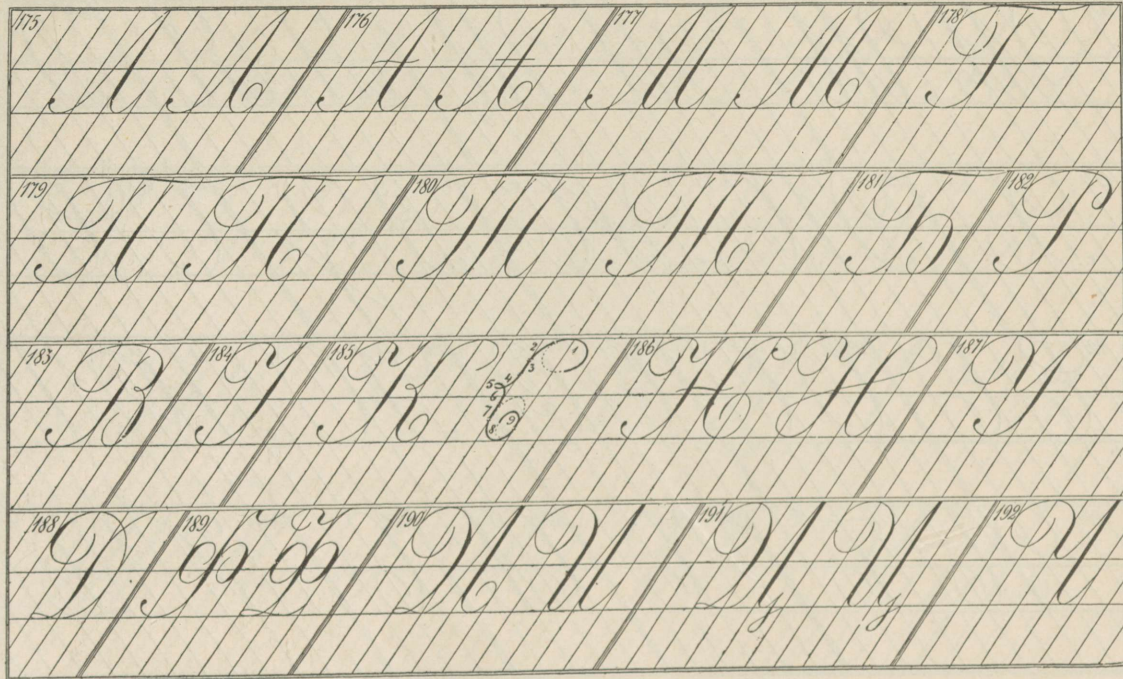 175 Л Л 176 А А 177 М М 178 Г
179 П П 180 Т Т 181 Б 182 Р
183 В 184 І 185 К 1 2 3 4 5 6 7 8 9 186 Н Н 187 У
188 D 189 Ф Ф 190 И И 191 Ц Ц 192 Ч